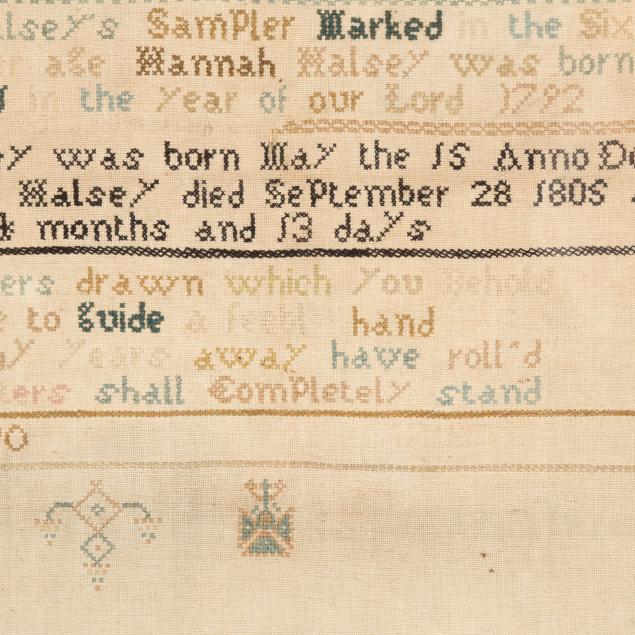 alsey's Sampler Marked in the Six
er age Hannah Halsey was born
in the year of our Lord 1792
ey was born May the 15 Anno Do
Halsey died September 28 1805
months and 13 days
ers drawn which you behold
e to Guide a feebl hand
ay years away have roll'd
ters shall Completely stand